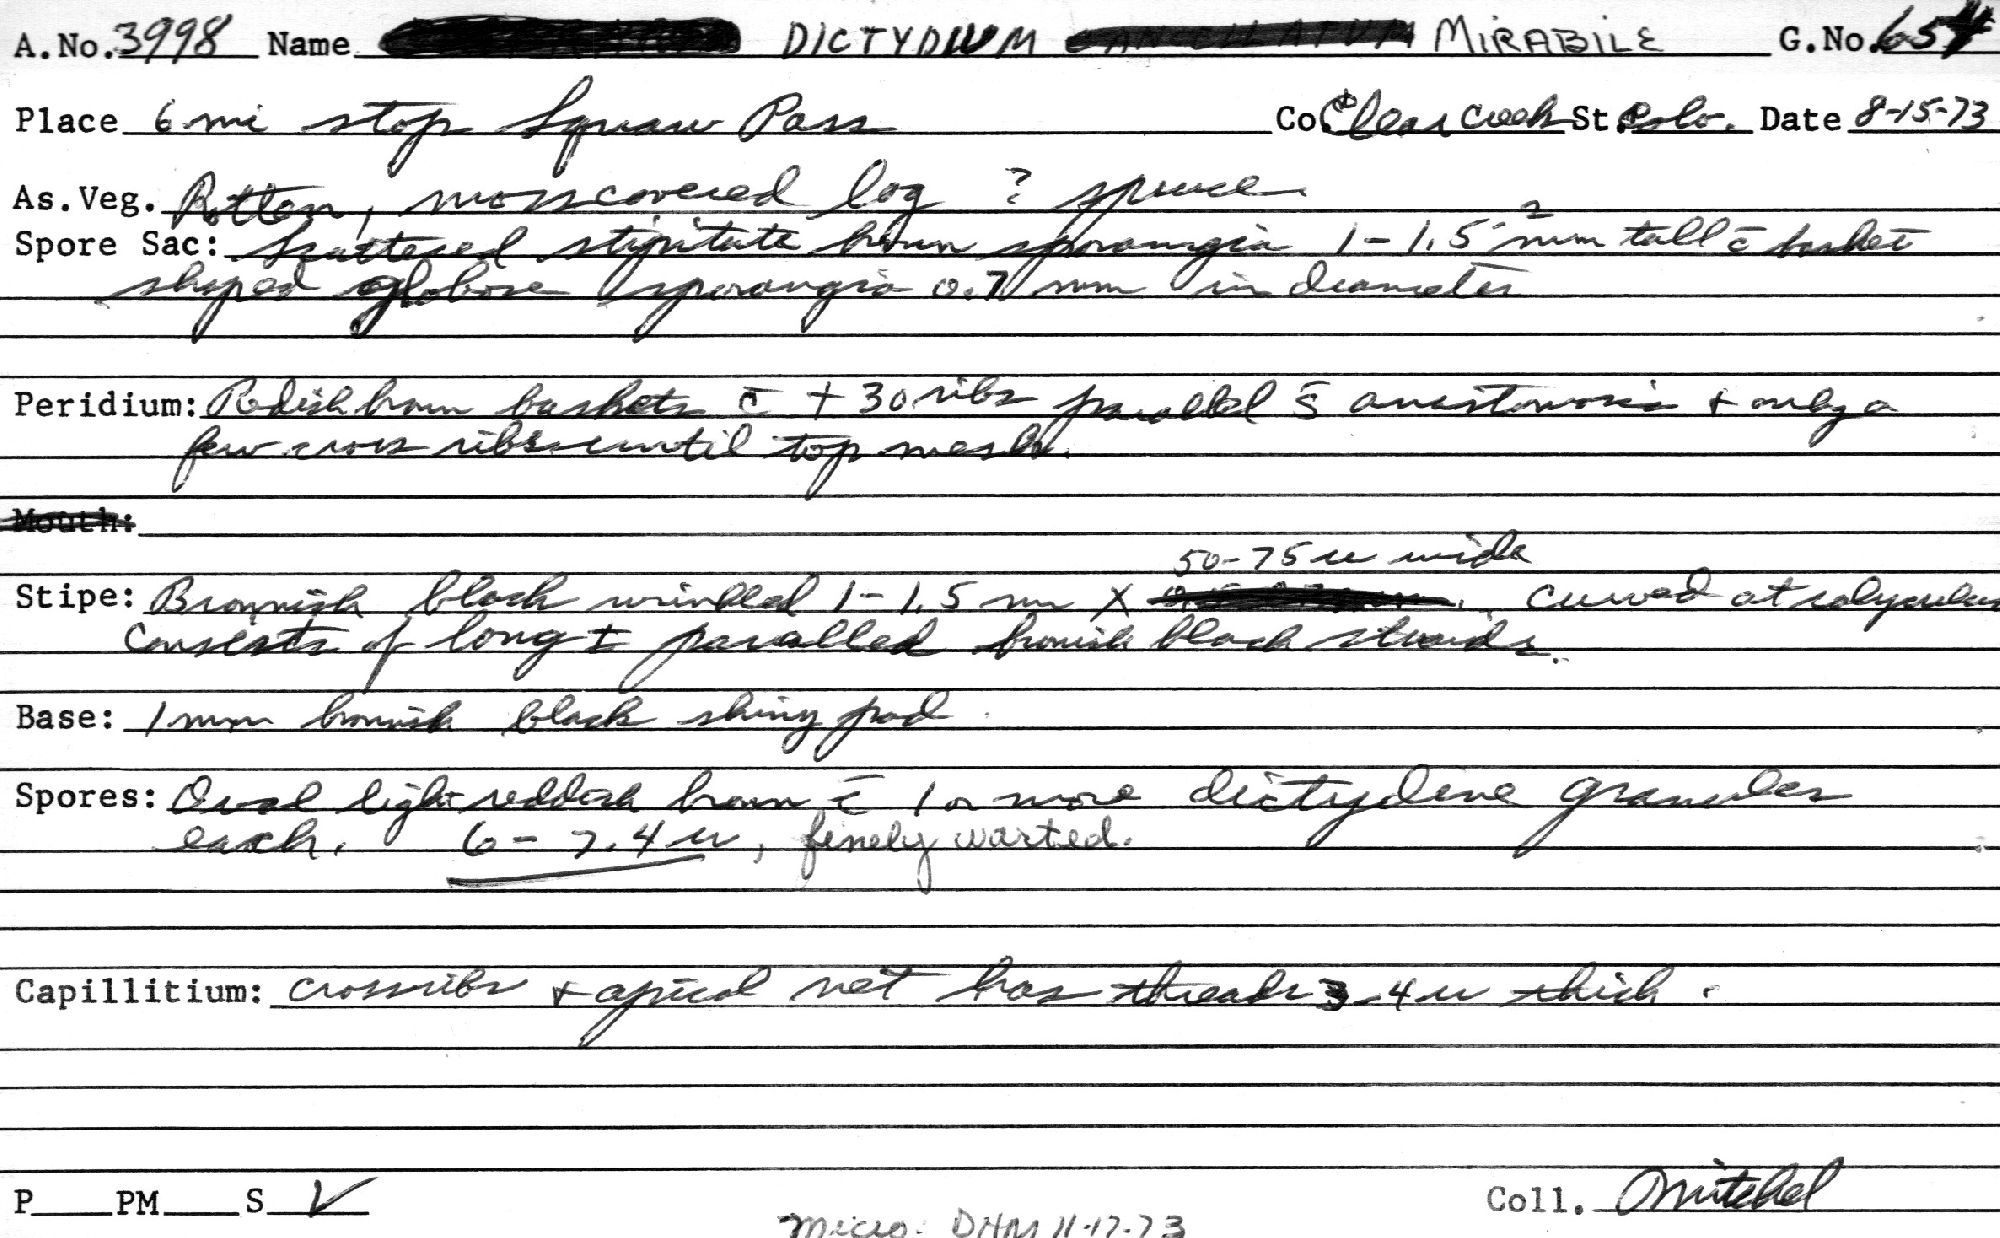 A.No. 3998 Name DICTYDIUM CANCELLATUM MIRABILE G.No. 654
Place 6 mi stop Squaw Pass Co. Clear Creek St. Colo. Date 8-15-73
As.Veg. Rotten, moss covered log ? spruce
Spore Sac: Scattered stipitate brown sporangia 1-1.5 2 mm tall c̄ basket
shaped globose sporangia 0.7 mm in diameter
Peridium: Redish brown baskets c̄ + 30 ribs parallel s̄ anastomosis + only a
few cross ribs until top mesh.
Mouth:
50-75 u wide
Stipe: Brownish black wrinkled 1-1.5 mm X curved at calyculus
Consists of long ± paralled brownish black strands.
Base: 1 mm brownish black shiny pad
Spores: Oval light reddish brown c̄ 1 or more dictydine granules
each. 6-7.4 u, finely warted.
Capillitium: crossribs + apical net has threads 3-4 u thick.
P PM S ✓ Coll. Mitchel
Micro. DHM 11-17-73